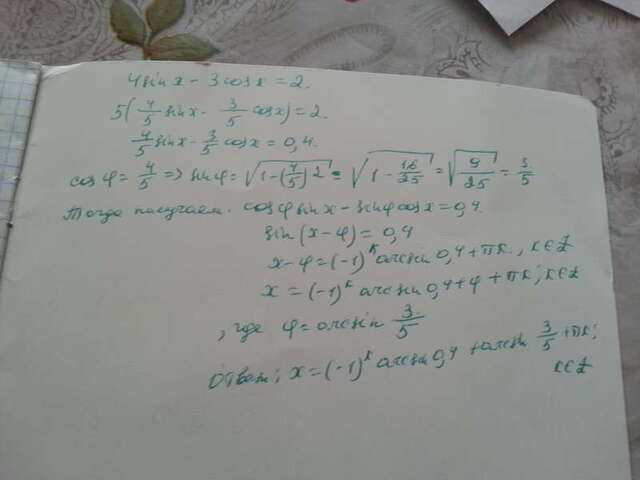 4sin x - 3cos x = 2.
5(4/5 sin x - 3/5 cos x) = 2.
4/5 sin x - 3/5 cos x = 0,4.
cos φ = 4/5 => sin φ = √(1-(4/5)2) = √(1 - 16/25) = √(9/25) = 3/5
Тогда получаем. cos φ sin x - sin φ cos x = 0,4.
sin(x-φ) = 0,4
x-φ = (-1)^k arcsin 0,4 + πk., k∈Z
x = (-1)^k arcsin 0,4 + φ + πk; k∈Z
, где φ = arcsin 3/5
ответ; x = (-1)^k arcsin 0,4 + arcsin 3/5 + πk;
k∈Z